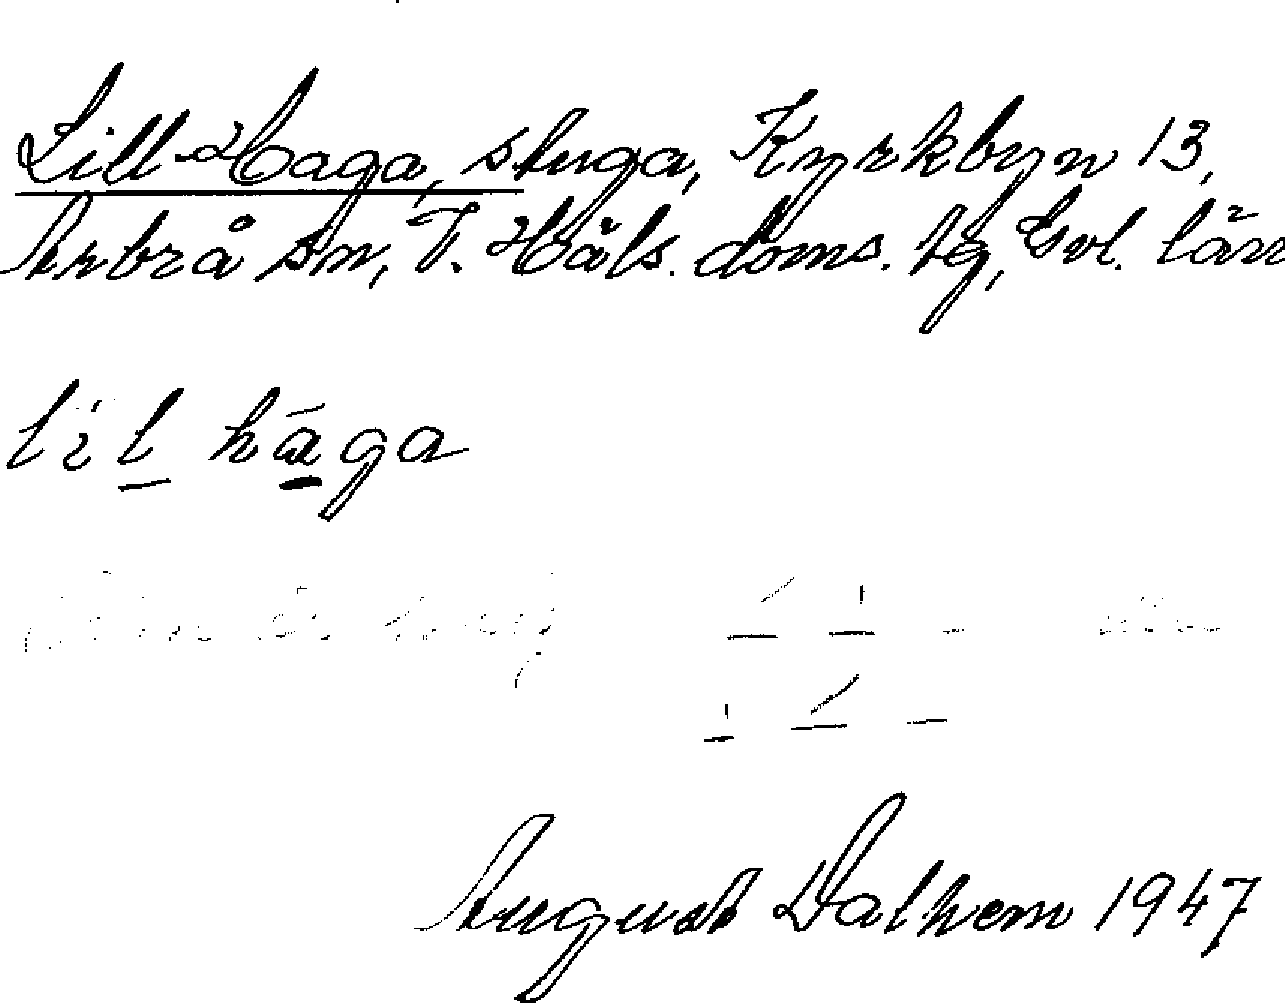 Lill-Haga, stuga, Kyrkbyn 13,
Arbrå sn, V. Häls. doms. tg, Gvl. län
lil hāga
August Dalhem 1947